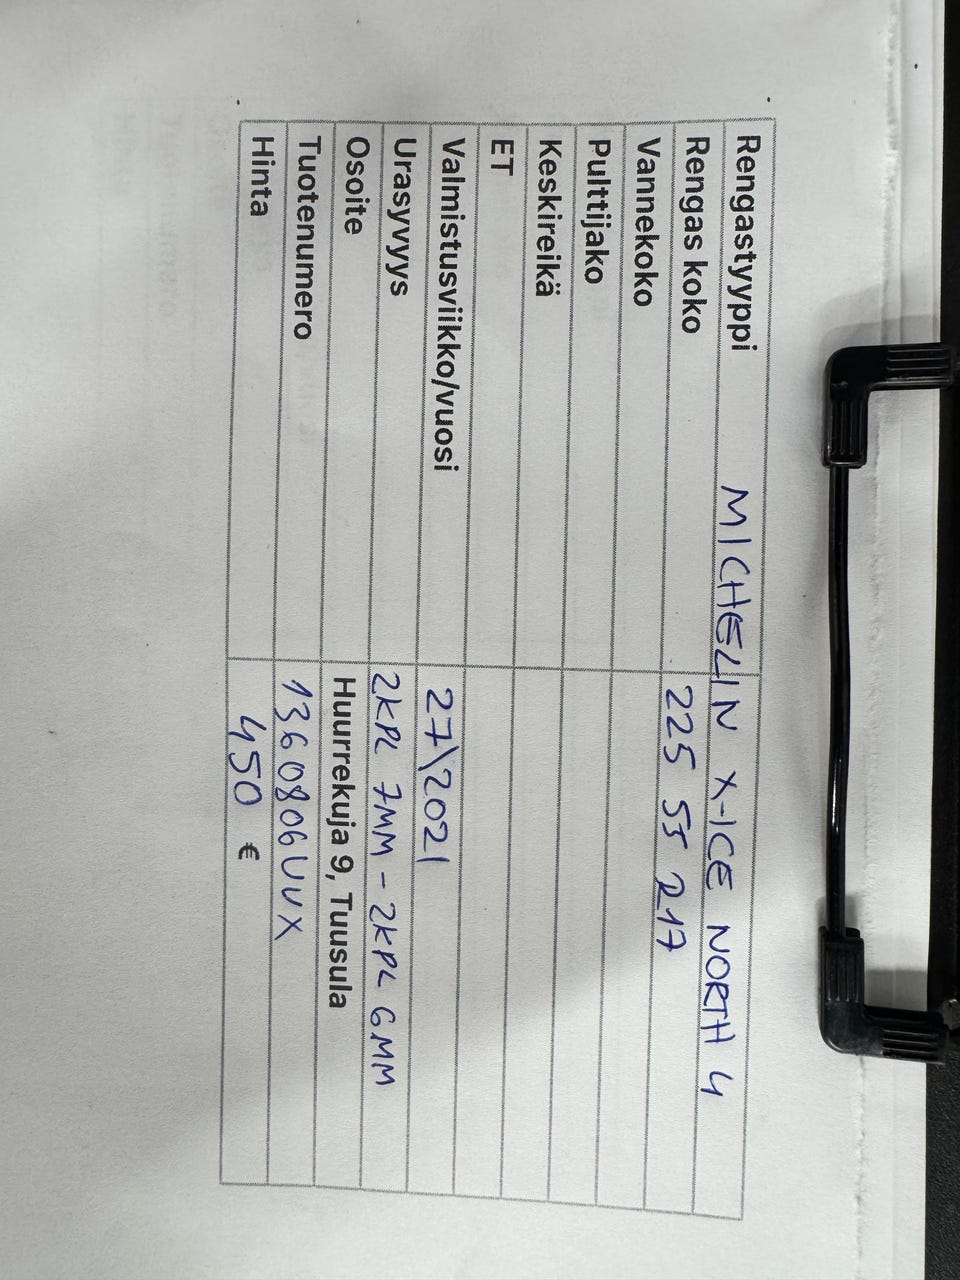 Rengastyyppi MICHELIN X-ICE NORTH 4
Rengas koko 225 55 R17
Vannekoko
Pulttijako
Keskireikä
ET
Valmistusviikko/vuosi 27\2021
Urasyvyys 2KPL 7MM - 2KPL 6MM
Osoite Huurrekuja 9, Tuusula
Tuotenumero 1360806UUX
Hinta 450 €